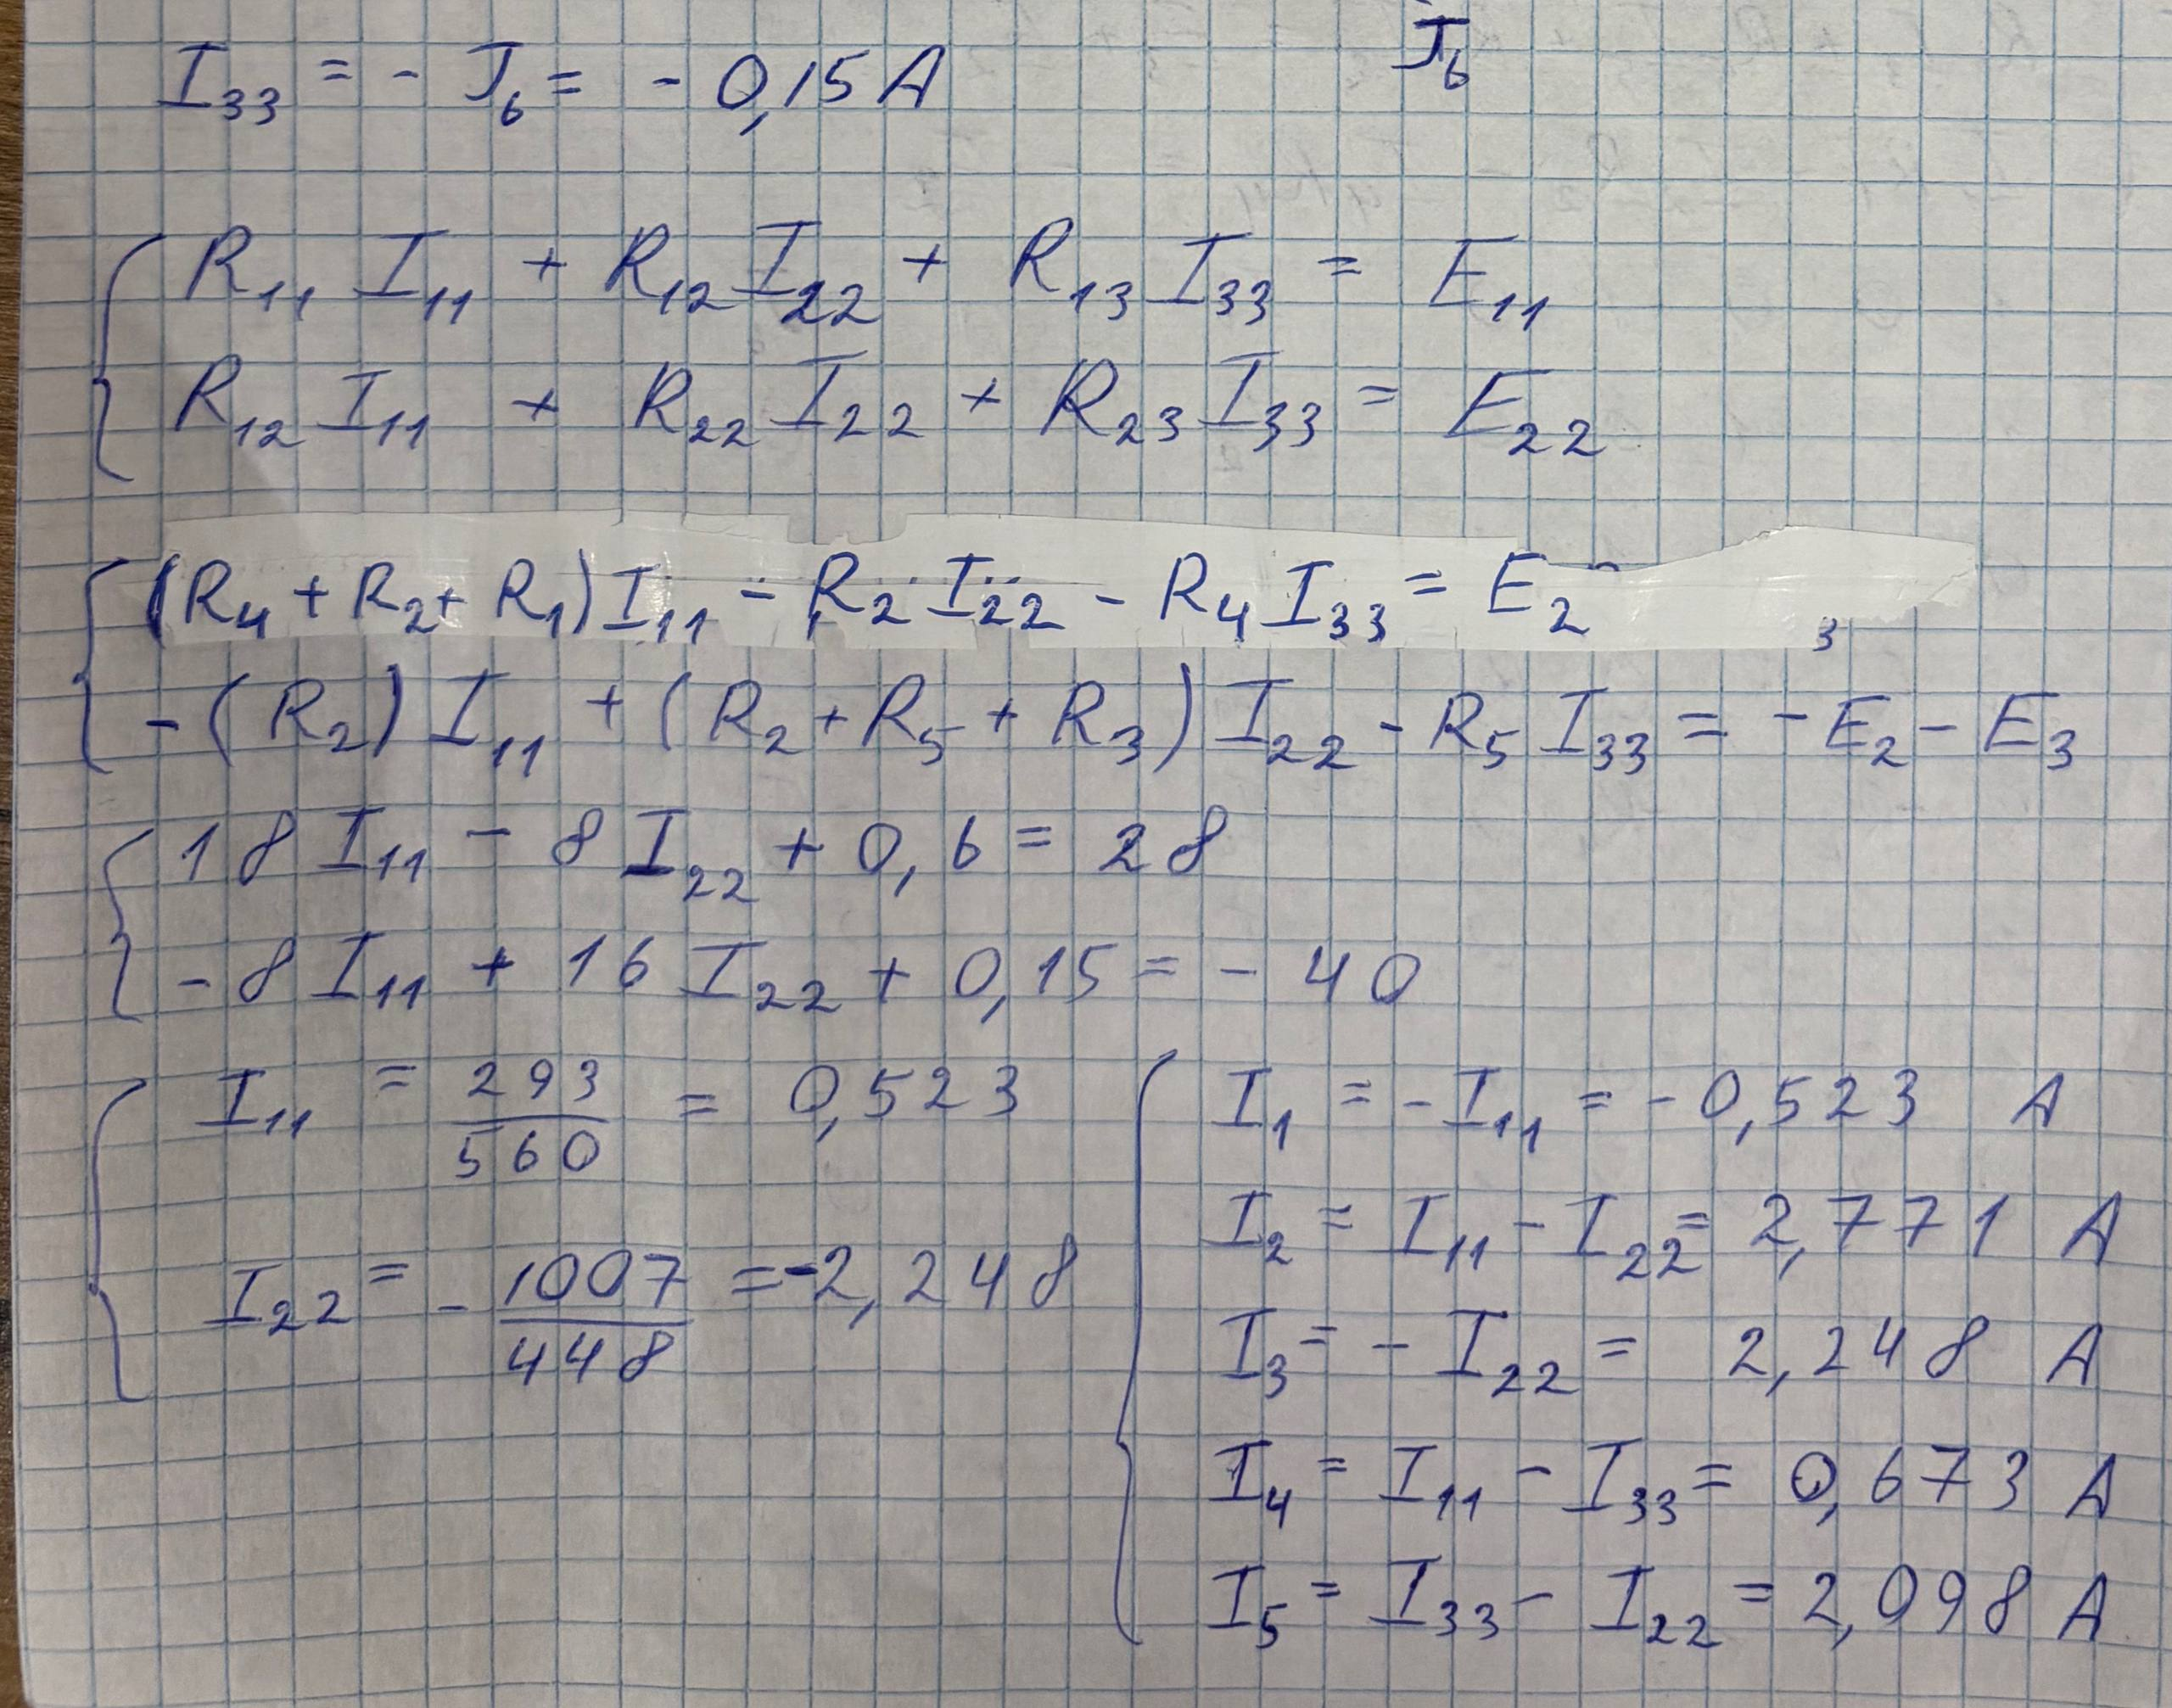 J₆
I₃₃ = - J₆ = - 0,15 A
R₁₁ I₁₁ + R₁₂ I₂₂ + R₁₃ I₃₃ = E₁₁
R₁₂ I₁₁ + R₂₂ I₂₂ + R₂₃ I₃₃ = E₂₂
(R₄ + R₂ + R₁) I₁₁ - R₂ I₂₂ - R₄ I₃₃ = E₂
₃
- (R₂) I₁₁ + (R₂ + R₅ + R₃) I₂₂ - R₅ I₃₃ = - E₂ - E₃
18 I₁₁ - 8 I₂₂ + 0,6 = 28
- 8 I₁₁ + 16 I₂₂ + 0,15 = - 40
I₁₁ = 293/560 = 0,523
I₂₂ = - 1007/448 = -2,248
I₁ = - I₁₁ = - 0,523 A
I₂ = I₁₁ - I₂₂ = 2,771 A
I₃ = - I₂₂ = 2,248 A
I₄ = I₁₁ - I₃₃ = 0,673 A
I₅ = I₃₃ - I₂₂ = 2,098 A